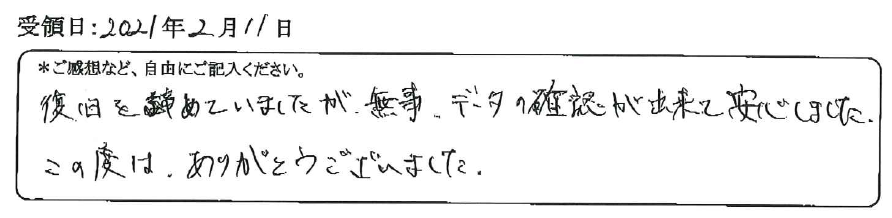 受領日:2021年2月11日
*ご感想など、自由にご記入ください。
復旧を諦めていましたが、無事、データの確認が出来て安心しました.
この度は、ありがとうございました.